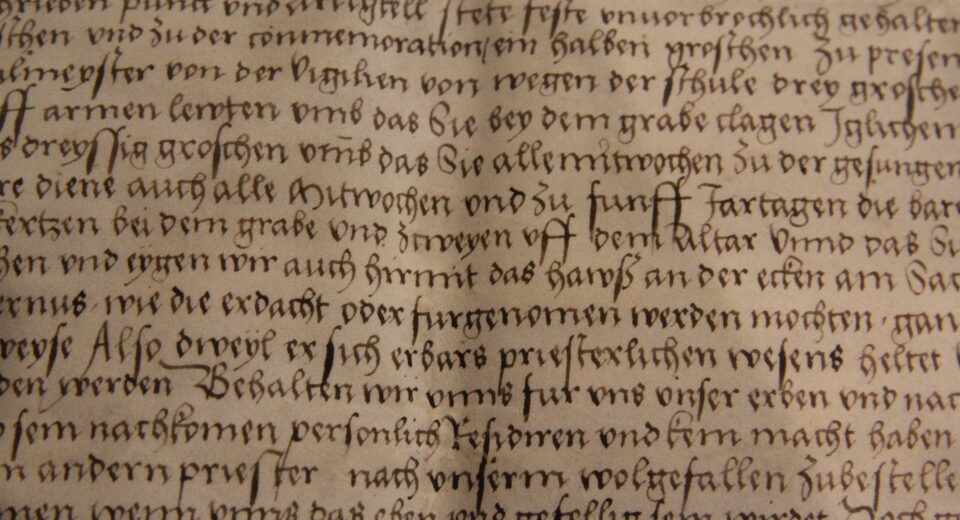 schrieben punct und artigkell stete feste unvorbrochlich gehalten
schen und zu der conmemoration ein halben groschen zu presen
almeyster von der vigilien von wegen der schule drey grosche
ff armen lewten umb das Sie bey dem grabe clagen Iglichem
s dreyssig groschen umb das Sie alle mitwochen zu der gesungen
re diene auch alle Mitwochen und zu funff Jartagen die bare
kertzen bei dem grabe und zcweyen uff dem Altar Unnd das Si
hen und eygen wir auch hirmit das hawß an der ecken am Sac
ernus wie die erdacht oder furgenomen werden mochten gan
weyse Also dweyl er sich erbars priesterlichen wesens heltet
den werden Behalten wir unns fur uns unser erben und nac
sein nachkomen personlich Residiren und kein macht haben
n andern priester nach unserm wolgefallen zubestelle
men wenn unns das eben und gefellig sein wirdet Doch